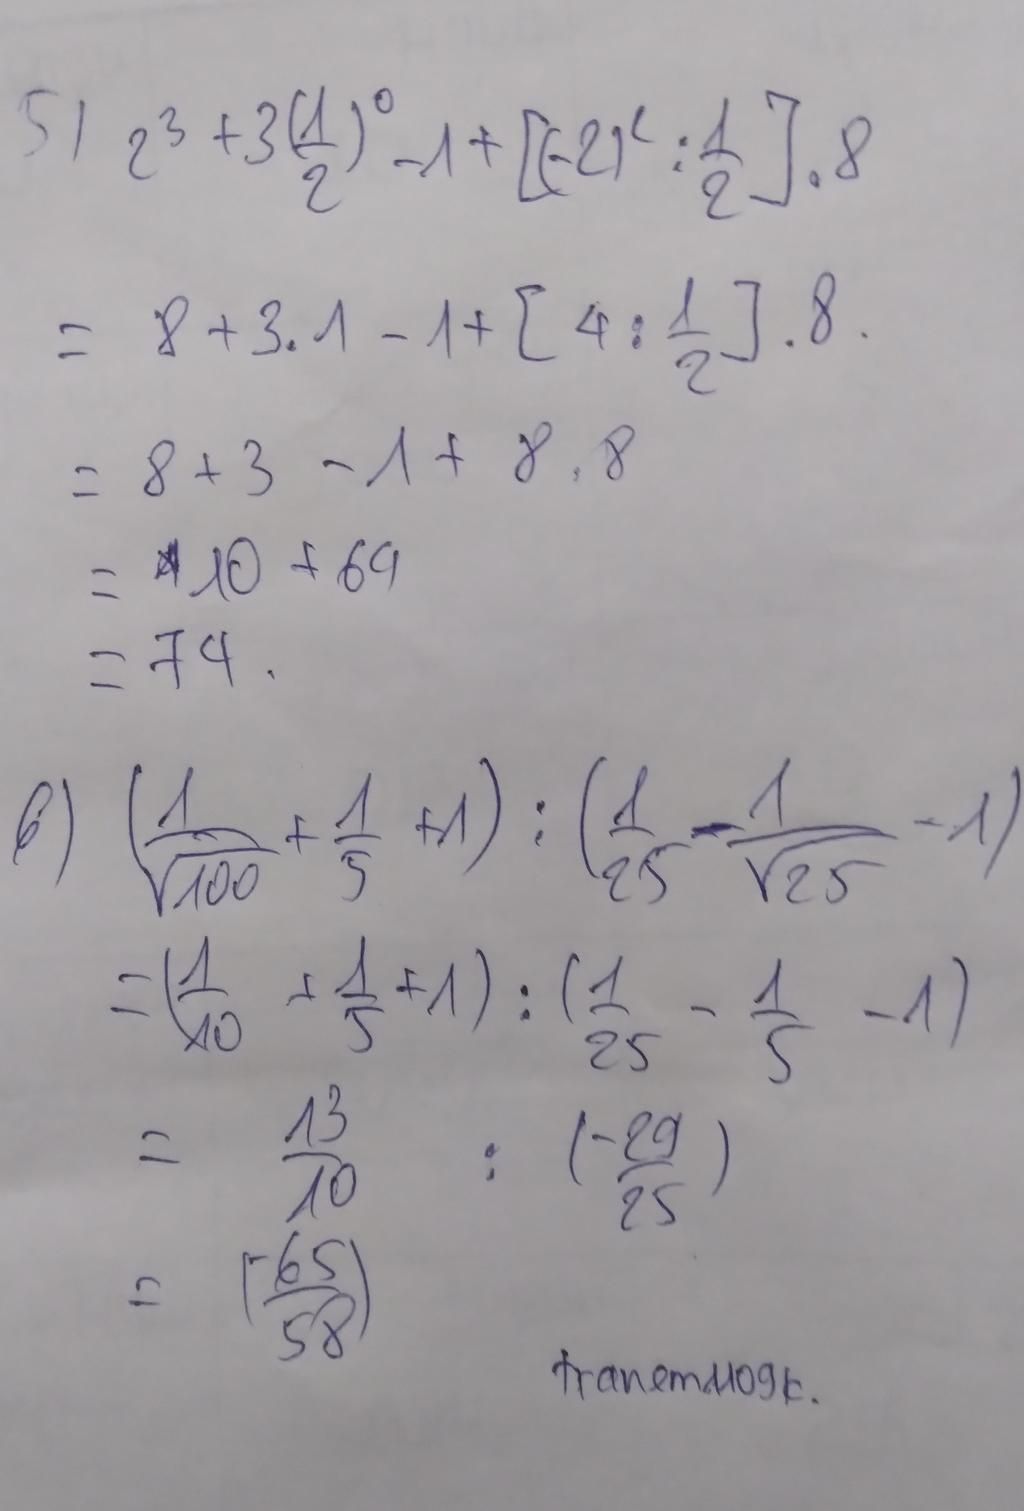 5) 2³ + 3(1/2)⁰ - 1 + [(-2)² : 1/2] . 8
= 8 + 3.1 - 1 + [4 : 1/2] . 8.
= 8 + 3 - 1 + 8 . 8
= 10 + 64
= 74.
6) (1/√100 + 1/5 + 1) : (1/25 - 1/√25 - 1)
= (1/10 + 1/5 + 1) : (1/25 - 1/5 - 1)
= 13/10 : (-29/25)
= (-65/58)
tranem1109k.